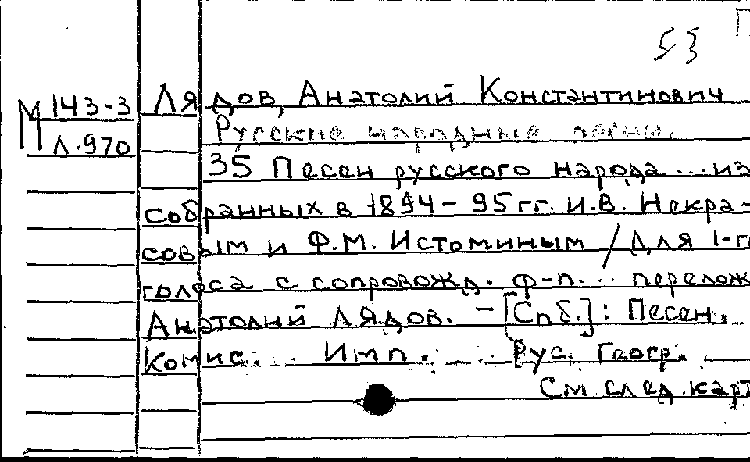 53
М 143-3 Лядов, Анатолий Константинович
Л-970 Русские народные песни.
35 Песен русского народа ... из
собранных в 1894-95 гг. И.В. Некра-
совым и Ф.М. Истоминым / Для 1-г
голоса с сопровожд. ф-п. ... перелож
Анатолий Лядов. - [Спб.]: Песен.
Комис. ... Имп. ... Рус. Геогр.
См. след. карт